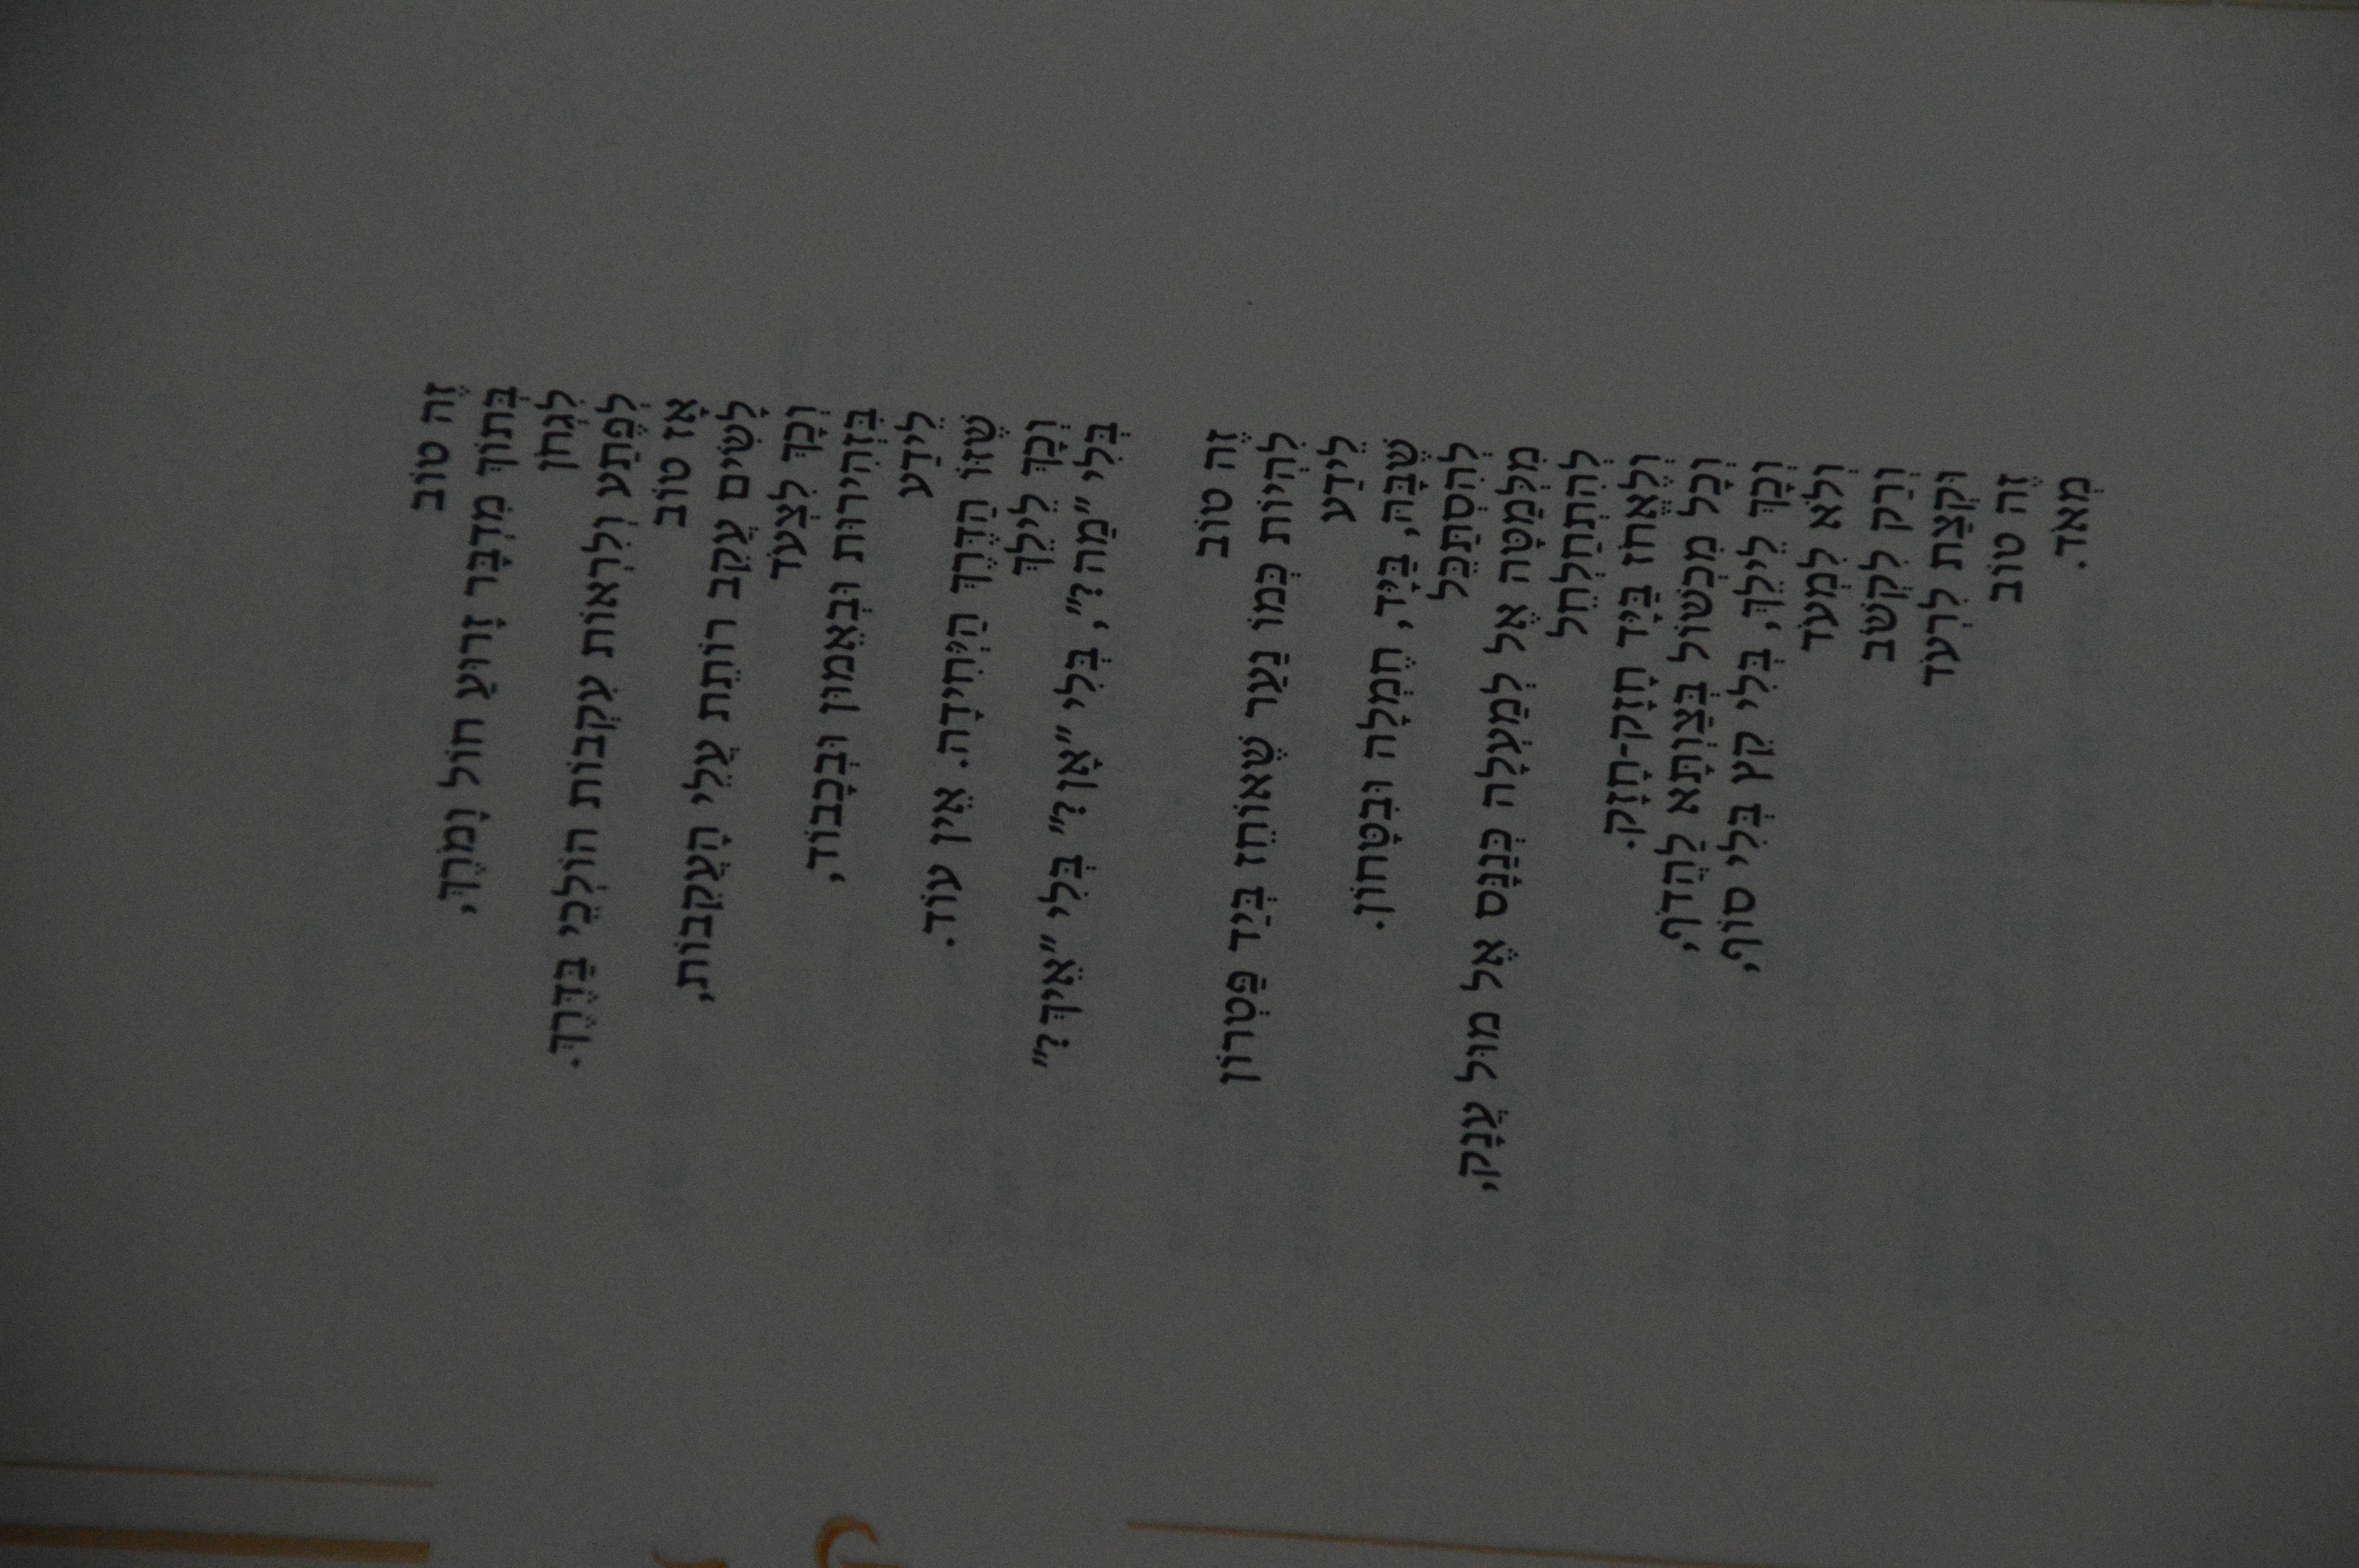 זֶה טוֹב
בְּתוֹךְ מִדְבָּר זָרוּעַ חוֹל וָמֹרֶךְ,
לִגְחֹן
לְפֶתַע וְלִרְאוֹת עִקְבוֹת הוֹלְכֵי בַּדֶּרֶךְ.
אָז טוֹב
לָשִׂים עָקֵב רוֹתֵת עֲלֵי הָעֲקֵבוֹת,
וְכָךְ לִצְעֹד
בִּזְהִירוּת וּבְאֵמוּן וּבְכָבוֹד,
לֵידַע
שֶׁזּוֹ הַדֶּרֶךְ הַיְּחִידָה. אֵין עוֹד.
וְכָךְ לֵילֵךְ
בְּלִי "מַה?", בְּלִי "אָן?" בְּלִי "אֵיךְ?"
זֶה טוֹב
לִהְיוֹת כְּמוֹ נַעַר שֶׁאוֹחֵז בְּיַד פַּטְרוֹן
לֵידַע
שֶׁבָּהּ, בַּיָּד, חֶמְלָה וּבִטָּחוֹן.
לְהִסְתַּכֵּל
מִלְּמַטָּה אֶל לְמַעְלָה כְּנַנָּס אֶל מוּל עֲנָק,
לְהִתְחַלְחֵל
וְלֶאֱחֹז בַּיָּד חָזָק-חָזָק.
וְכָל מִכְשׁוֹל בְּצַוְתָּא לַהֲדֹף,
וְכָךְ לֵילֵךְ, בְּלִי קֵץ בְּלִי סוֹף,
וְלֹא לִמְעֹד
וְרַק לִקְשֹׁב
וּקְצַת לִרְעֹד
זֶה טוֹב
מְאֹד.